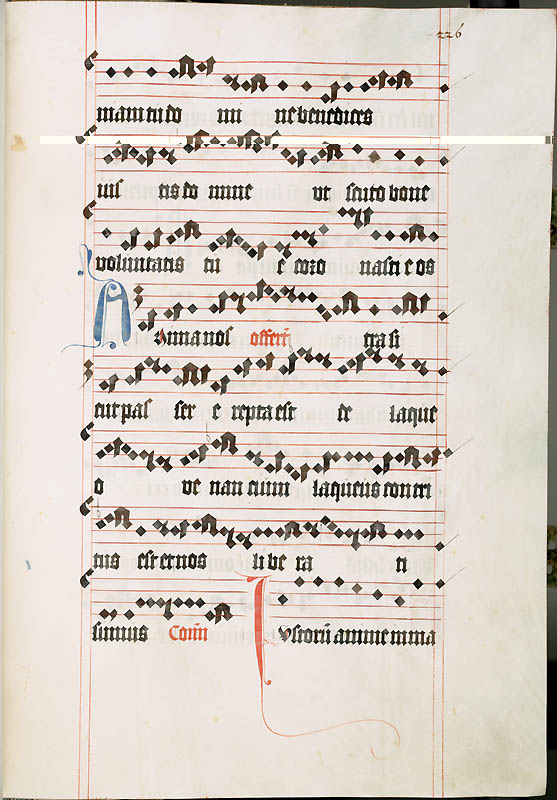 226
niam tu do mi ne benedices
ius tis do mine ut scuto bone
voluntatis tu e coro nasti e os
Anima nos offert tra si
cut pas ser e repta est de laque
o ve nan cium laqueus con tri
tus est et nos li be ra ti
sumus Com Iustoru anime in ma